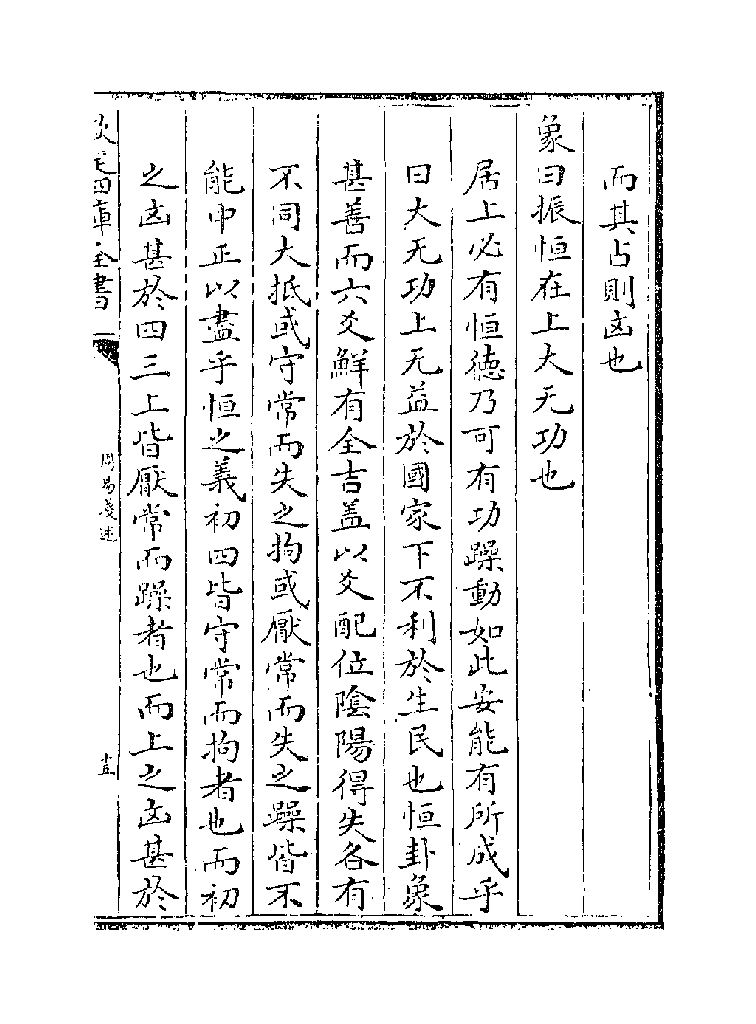 而其占則凶也
象曰振恒在上大无功也
居上必有恒德乃可有功躁動如此安能有所成乎
曰大无功上无益於國家下不利於生民也恒卦彖
甚善而六爻鮮有全吉盖以爻配位陰陽得失各有
不同大抵或守常而失之拘或厭常而失之躁皆不
能中正以盡乎恒之義初四皆守常而拘者也而初
之凶甚於四三上皆厭常而躁者也而上之凶甚於
欽定四庫全書
周易淺述
十五